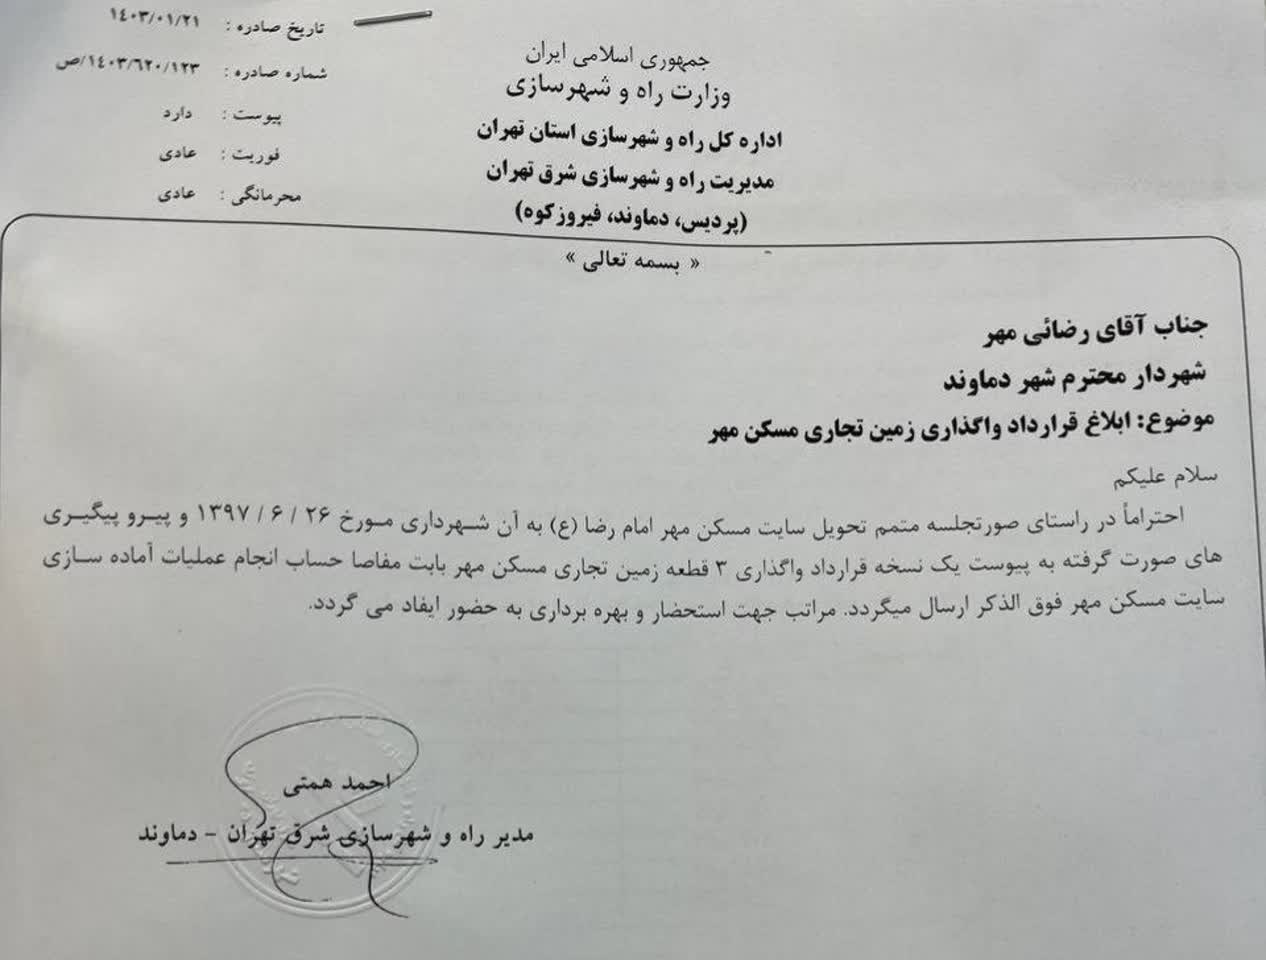 تاریخ صادره : ۱۴۰۳/۰۱/۲۱
شماره صادره : ۱۴۰۳/۶۲۰/۱۲۳/ص
پیوست : دارد
فوریت : عادی
محرمانگی : عادی
جمهوری اسلامی ایران
وزارت راه و شهرسازی
اداره کل راه و شهرسازی استان تهران
مدیریت راه و شهرسازی شرق تهران
(پردیس، دماوند، فیروزکوه)
« بسمه تعالی »
جناب آقای رضائی مهر
شهردار محترم شهر دماوند
موضوع: ابلاغ قرارداد واگذاری زمین تجاری مسکن مهر
سلام علیکم
احتراماً در راستای صورتجلسه متمم تحویل سایت مسکن مهر امام رضا (ع) به آن شهرداری مورخ ۲۶ / ۶ / ۱۳۹۷ و پیرو پیگیری
های صورت گرفته به پیوست یک نسخه قرارداد واگذاری ۳ قطعه زمین تجاری مسکن مهر بابت مفاصا حساب انجام عملیات آماده سازی
سایت مسکن مهر فوق الذکر ارسال میگردد. مراتب جهت استحضار و بهره برداری به حضور ایفاد می گردد.
احمد همتی
مدیر راه و شهرسازی شرق تهران - دماوند